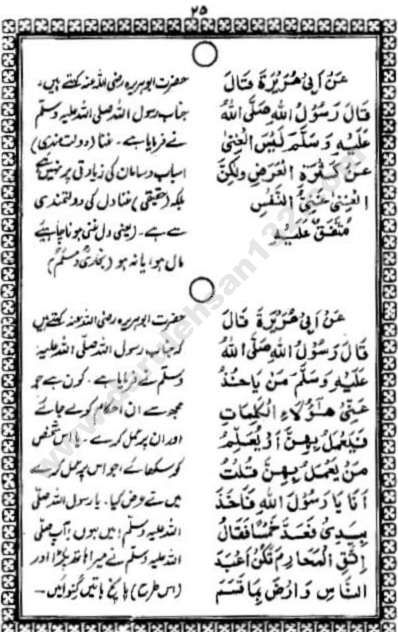 ۲۵
عَنْ اَبِیْ هُرَیْرَةَ قَالَ
قَالَ رَسُوْلُ اللهِ صَلَّی اللهُ
عَلَیْهِ وَسَلَّمَ لَیْسَ الْغِنٰی
عَنْ كَثْرَةِ الْعَرَضِ وَلٰكِنَّ
الْغِنٰی غِنَی النَّفْسِ
مُتَّفَقٌ عَلَیْهِ
حضرت ابوہریرہ رضی اللہ عنہ کہتے ہیں۔
جناب رسول اللہ صلی اللہ علیہ وسلم
نے فرمایا ہے۔ غنا (دولت مندی)
اسباب وسامان کی زیادتی پر نہیں ہے
بلکہ (حقیقی) غنا دل کی دولتمندی
سے ہے۔ (یعنی دل غنی ہونا چاہیئے
مال ہو، یا نہ ہو (بخاری و مسلم)
عَنْ اَبِیْ هُرَیْرَةَ قَالَ
قَالَ رَسُوْلُ اللهِ صَلَّی اللهُ
عَلَیْهِ وَسَلَّمَ مَنْ یَاْخُذُ
عَنِّیْ هٰۤؤُلَاءِ الْكَلِمَاتِ
فَیَعْمَلُ بِهِنَّ اَوْ یُعَلِّمُ
مَنْ یَعْمَلُ بِهِنَّ قُلْتُ
اَنَا یَا رَسُوْلَ اللهِ فَاَخَذَ
بِیَدِیْ فَعَدَّ خَمْسًا فَقَالَ
اِتَّقِ الْمَحَارِمَ تَكُنْ اَعْبَدَ
النَّاسِ وَارْضَ بِمَا قَسَمَ
حضرت ابوہریرہ رضی اللہ عنہ کہتے ہیں
کہ جناب رسول اللہ صلی اللہ علیہ
وسلم نے فرمایا ہے۔ کون ہے جو
مجھ سے ان احکام کو لے جائے
اور ان پر عمل کرے۔ یا اس شخص
کو سکھائے، جو اس پر عمل کرے
میں نے عرض کیا۔ یا رسول اللہ صلی
اللہ علیہ وسلم! میں ہوں، آپ صلی
اللہ علیہ وسلم نے میرا ہاتھ پکڑا اور
(اس طرح) پانچ باتیں گنوائیں۔